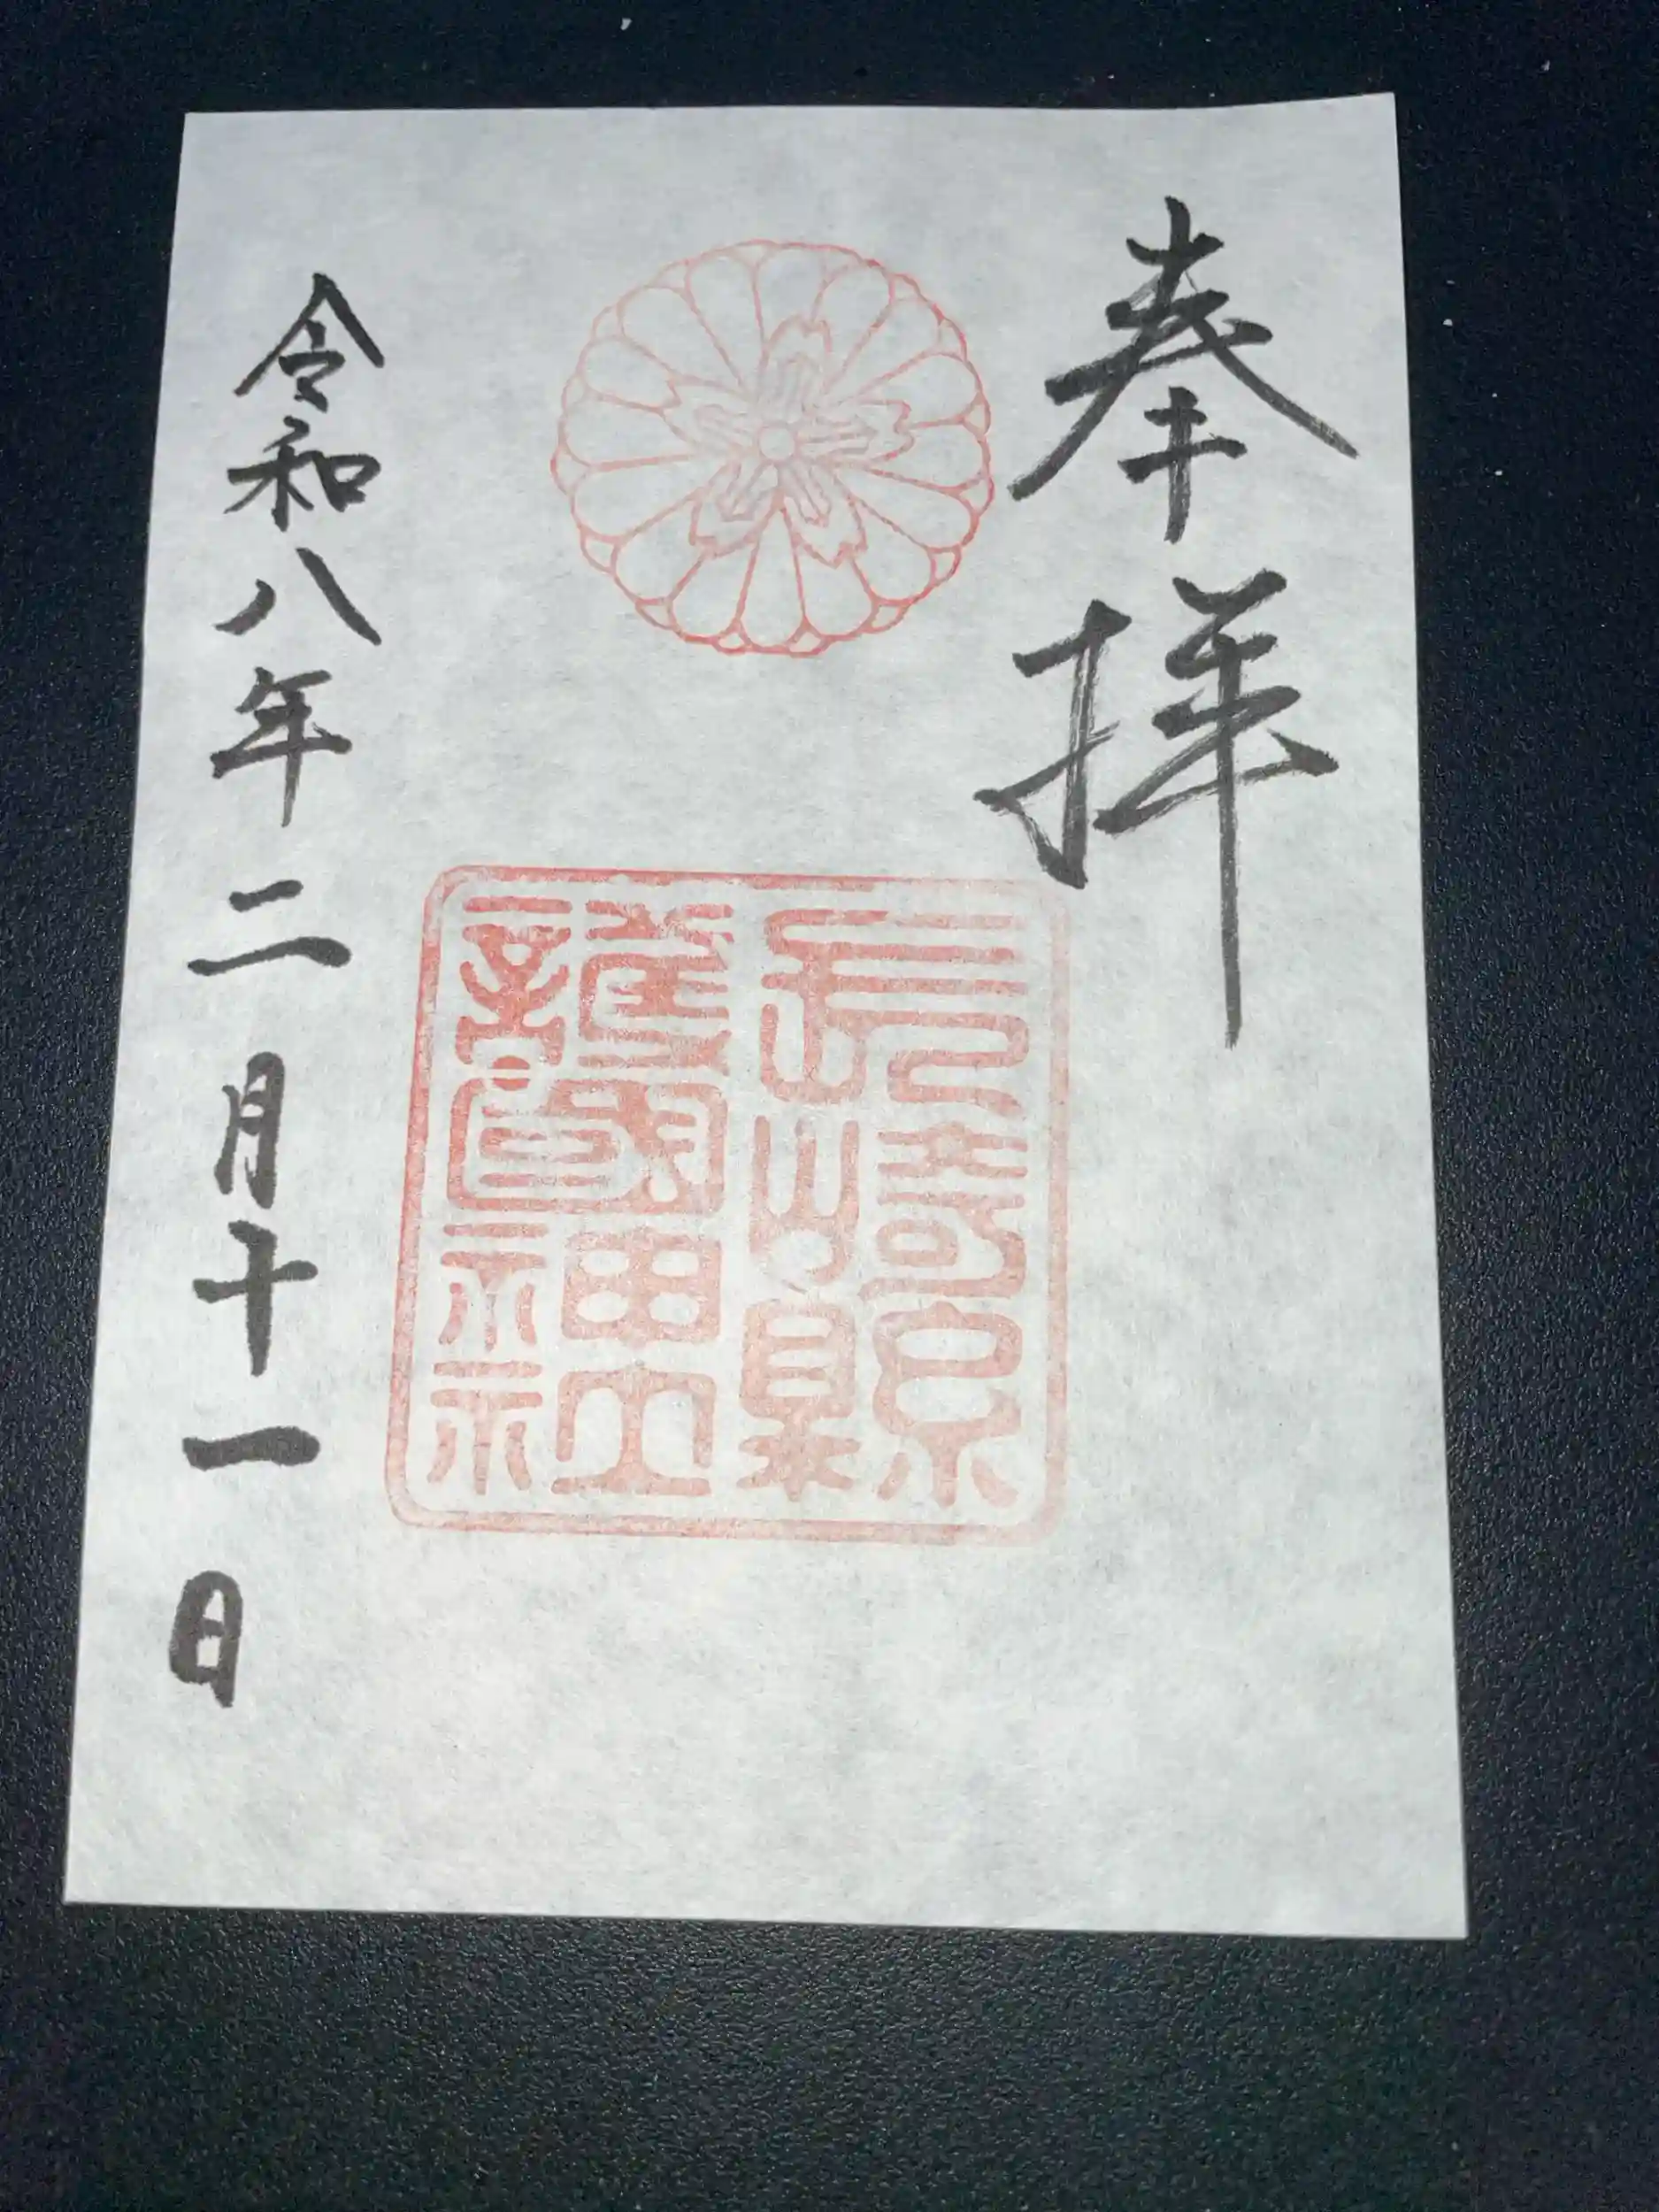 奉拝
長崎縣
護國神社
令和八年二月十一日